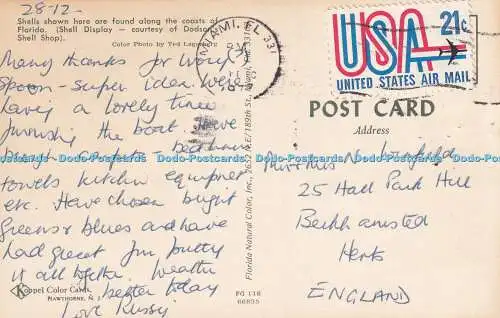 28-12-
Shells shown here are found along the coasts of
Florida. (Shell Display — courtesy of Dodson
Shell Shop).
Color Photo by Ted
Many thanks for
Spoon - super idea. We're
having a lovely time
furnishing the boat. Have
bought carpets - bedlinen
towels kitchen equipment
etc. Have chosen bright
greens & blues and have
had great fun putting
it all together. Weather
better today
Love
Koppel Color Cards
HAWTHORNE, N. J.
FG 118
66835
Florida Natural Color, Inc.
MIAMI, FL 331
PM
USA 21c
UNITED STATES AIR MAIL
POST CARD
Address
Mr & Mrs N. Wingfield
25 Hall Park Hill
Berkhamsted
Herts
ENGLAND
Dodo-Postcards Dodo-Postcards Dodo-Postcards Dodo-Postcards Dodo-Postcards